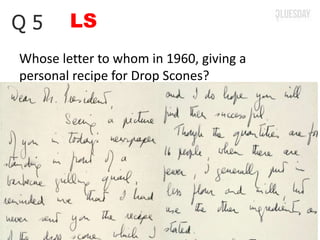 Q 5
LS
BLUESDAY
Whose letter to whom in 1960, giving a
personal recipe for Drop Scones?
Dear Mr. President,
Seeing a picture
of you in today's newspaper
standing in front of a
barbecue grilling quail,
reminded me that I had
never sent you the recipe
of the drop scones which I
and I do hope you will
find them successful.
Though the quantities are for
16 people, when there are
fewer, I generally put in
less flour and milk, but
use the other ingredients as
stated.